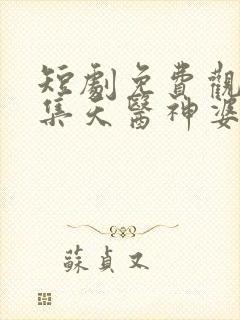 短劇免費觀
集天醫神婆
蘇貞又